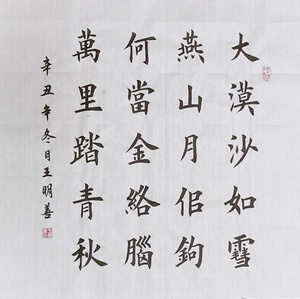 大漠沙如雪
燕山月佀鉤
何當金絡腦
萬里踏青秋
辛丑年冬月王明善